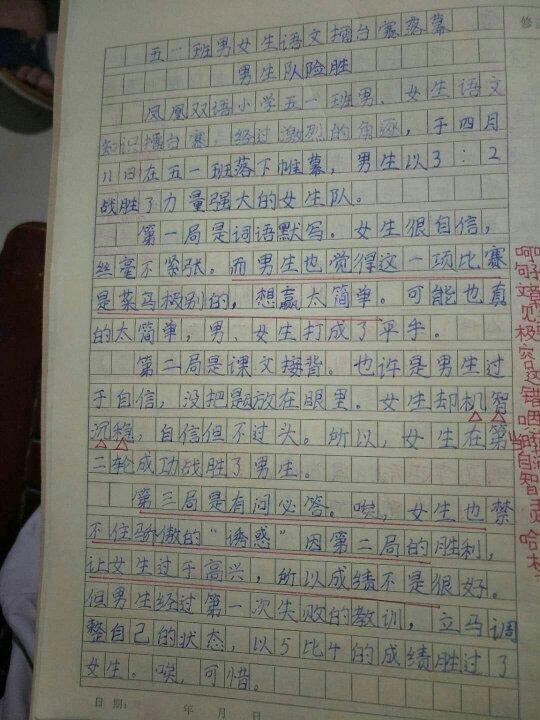 五一班男女生语文擂台赛落幕
男生队险胜
凤凰双语小学五一班男、女生语文
知识擂台赛,经过激烈的角逐,于四月
11日在五一班落下帷幕,男生以3:2
战胜了力量强大的女生队。
第一局是词语默写。女生很自信,
丝毫不紧张。而男生也觉得这一项比赛
是菜鸟极别的,想赢太简单。可能也真
的太简单,男、女生打成了平手。
第二局是课文接背。也许是男生过
于自信,没把题放在眼里。女生却机智
沉稳,自信但不过头。所以,女生在第
二轮成功战胜了男生。
第三局是有问必答。唉,女生也禁
不住骄傲的“诱惑”因第二局的胜利,
让女生过于高兴,所以成绩不是很好。
但男生经过第一次失败的教训,立马调
整自己的状态,以5比4的成绩胜过了
女生。唉,可惜。
日期: 年 月 日